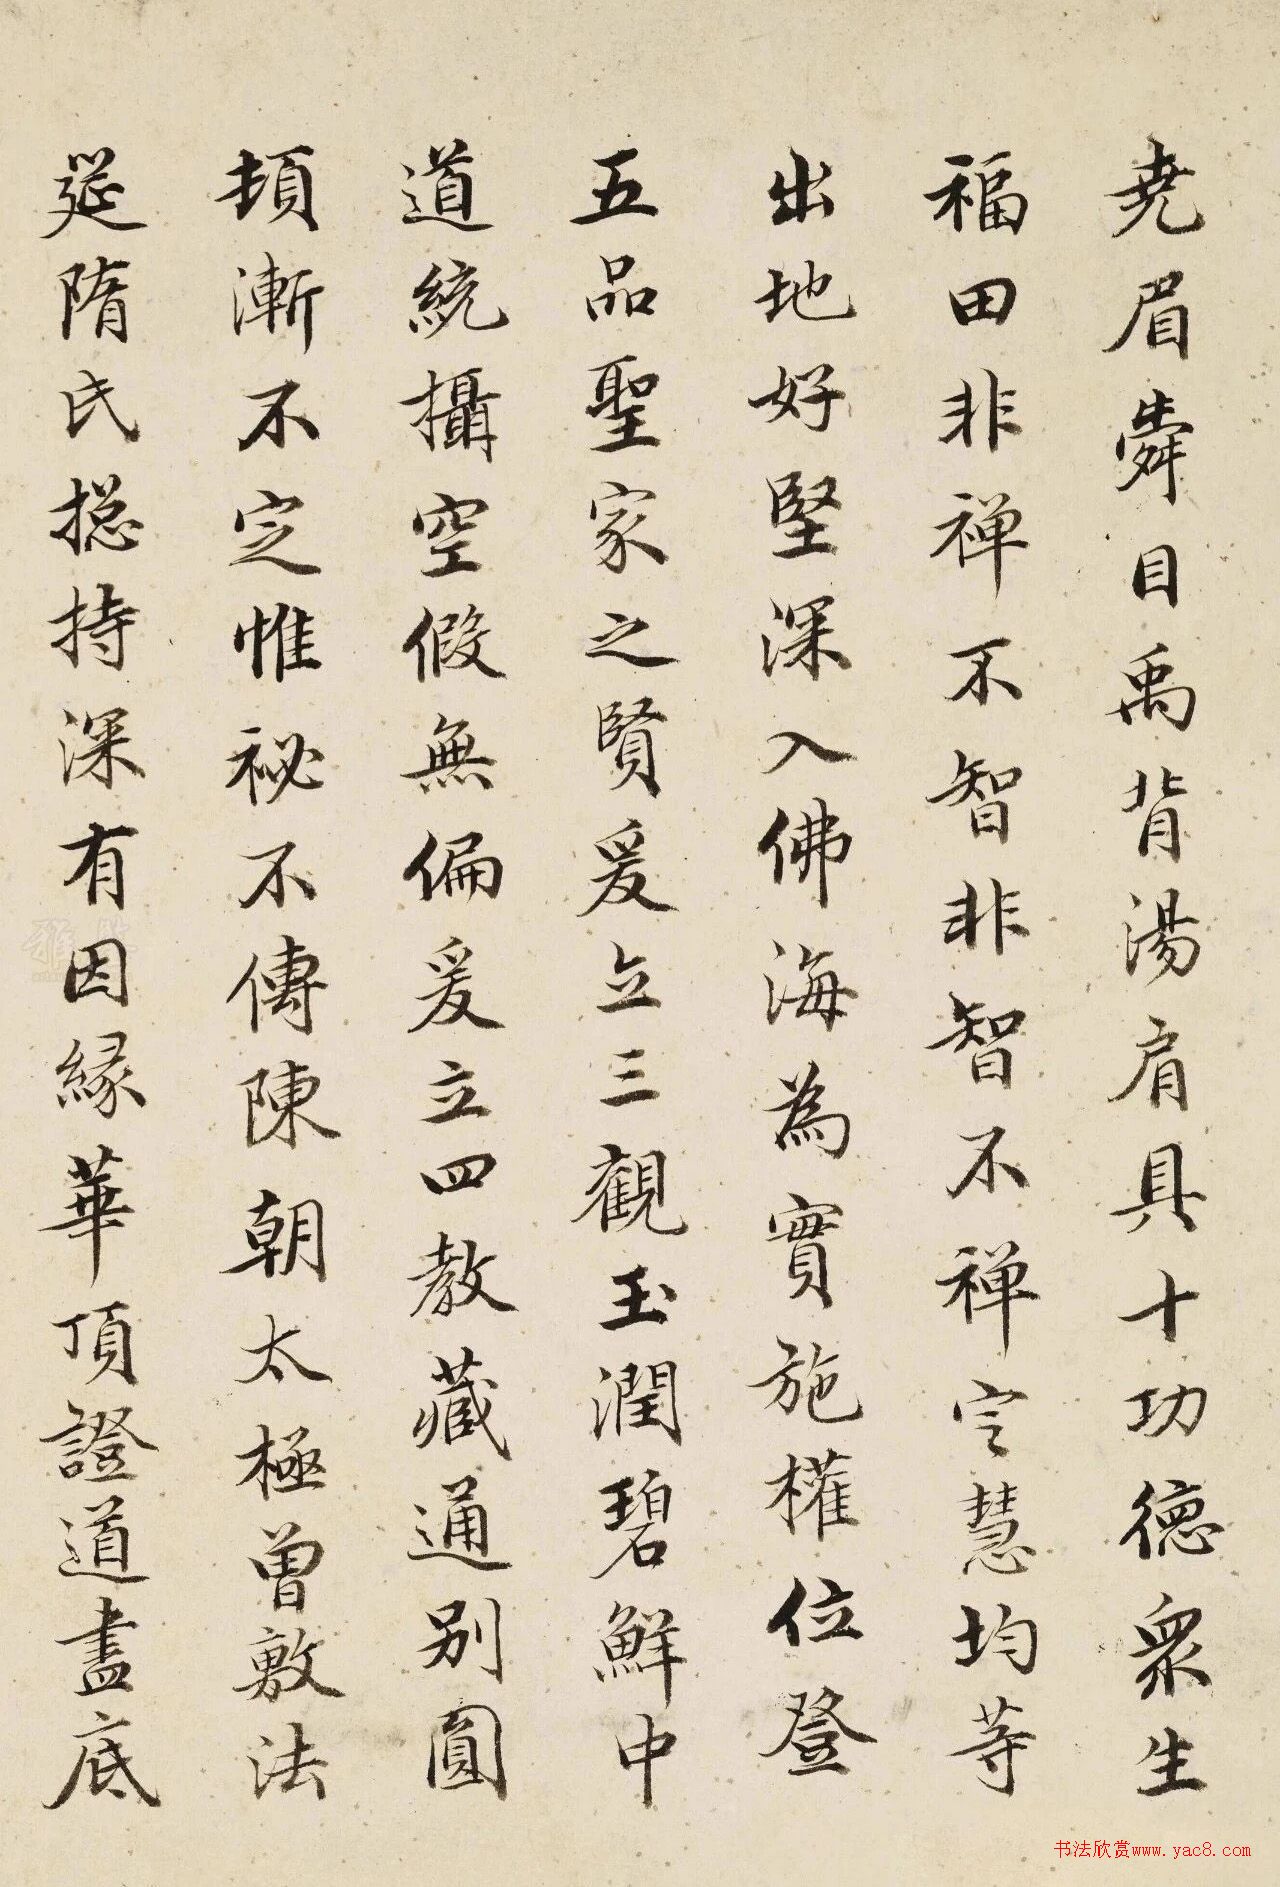 堯眉舜目禹背湯肩具十功德衆生
福田非禅不智非智不禅定慧均等
出地好堅深入佛海為實施權位登
五品聖家之賢爰立三觀玉潤碧鮮中
道統攝空假無偏爰立四教藏通別圓
頓漸不定惟祕不傳陳朝太極曾敷法
筵隋氏揔持深有因緣華頂證道盡底
书法欣赏www.yac8.com